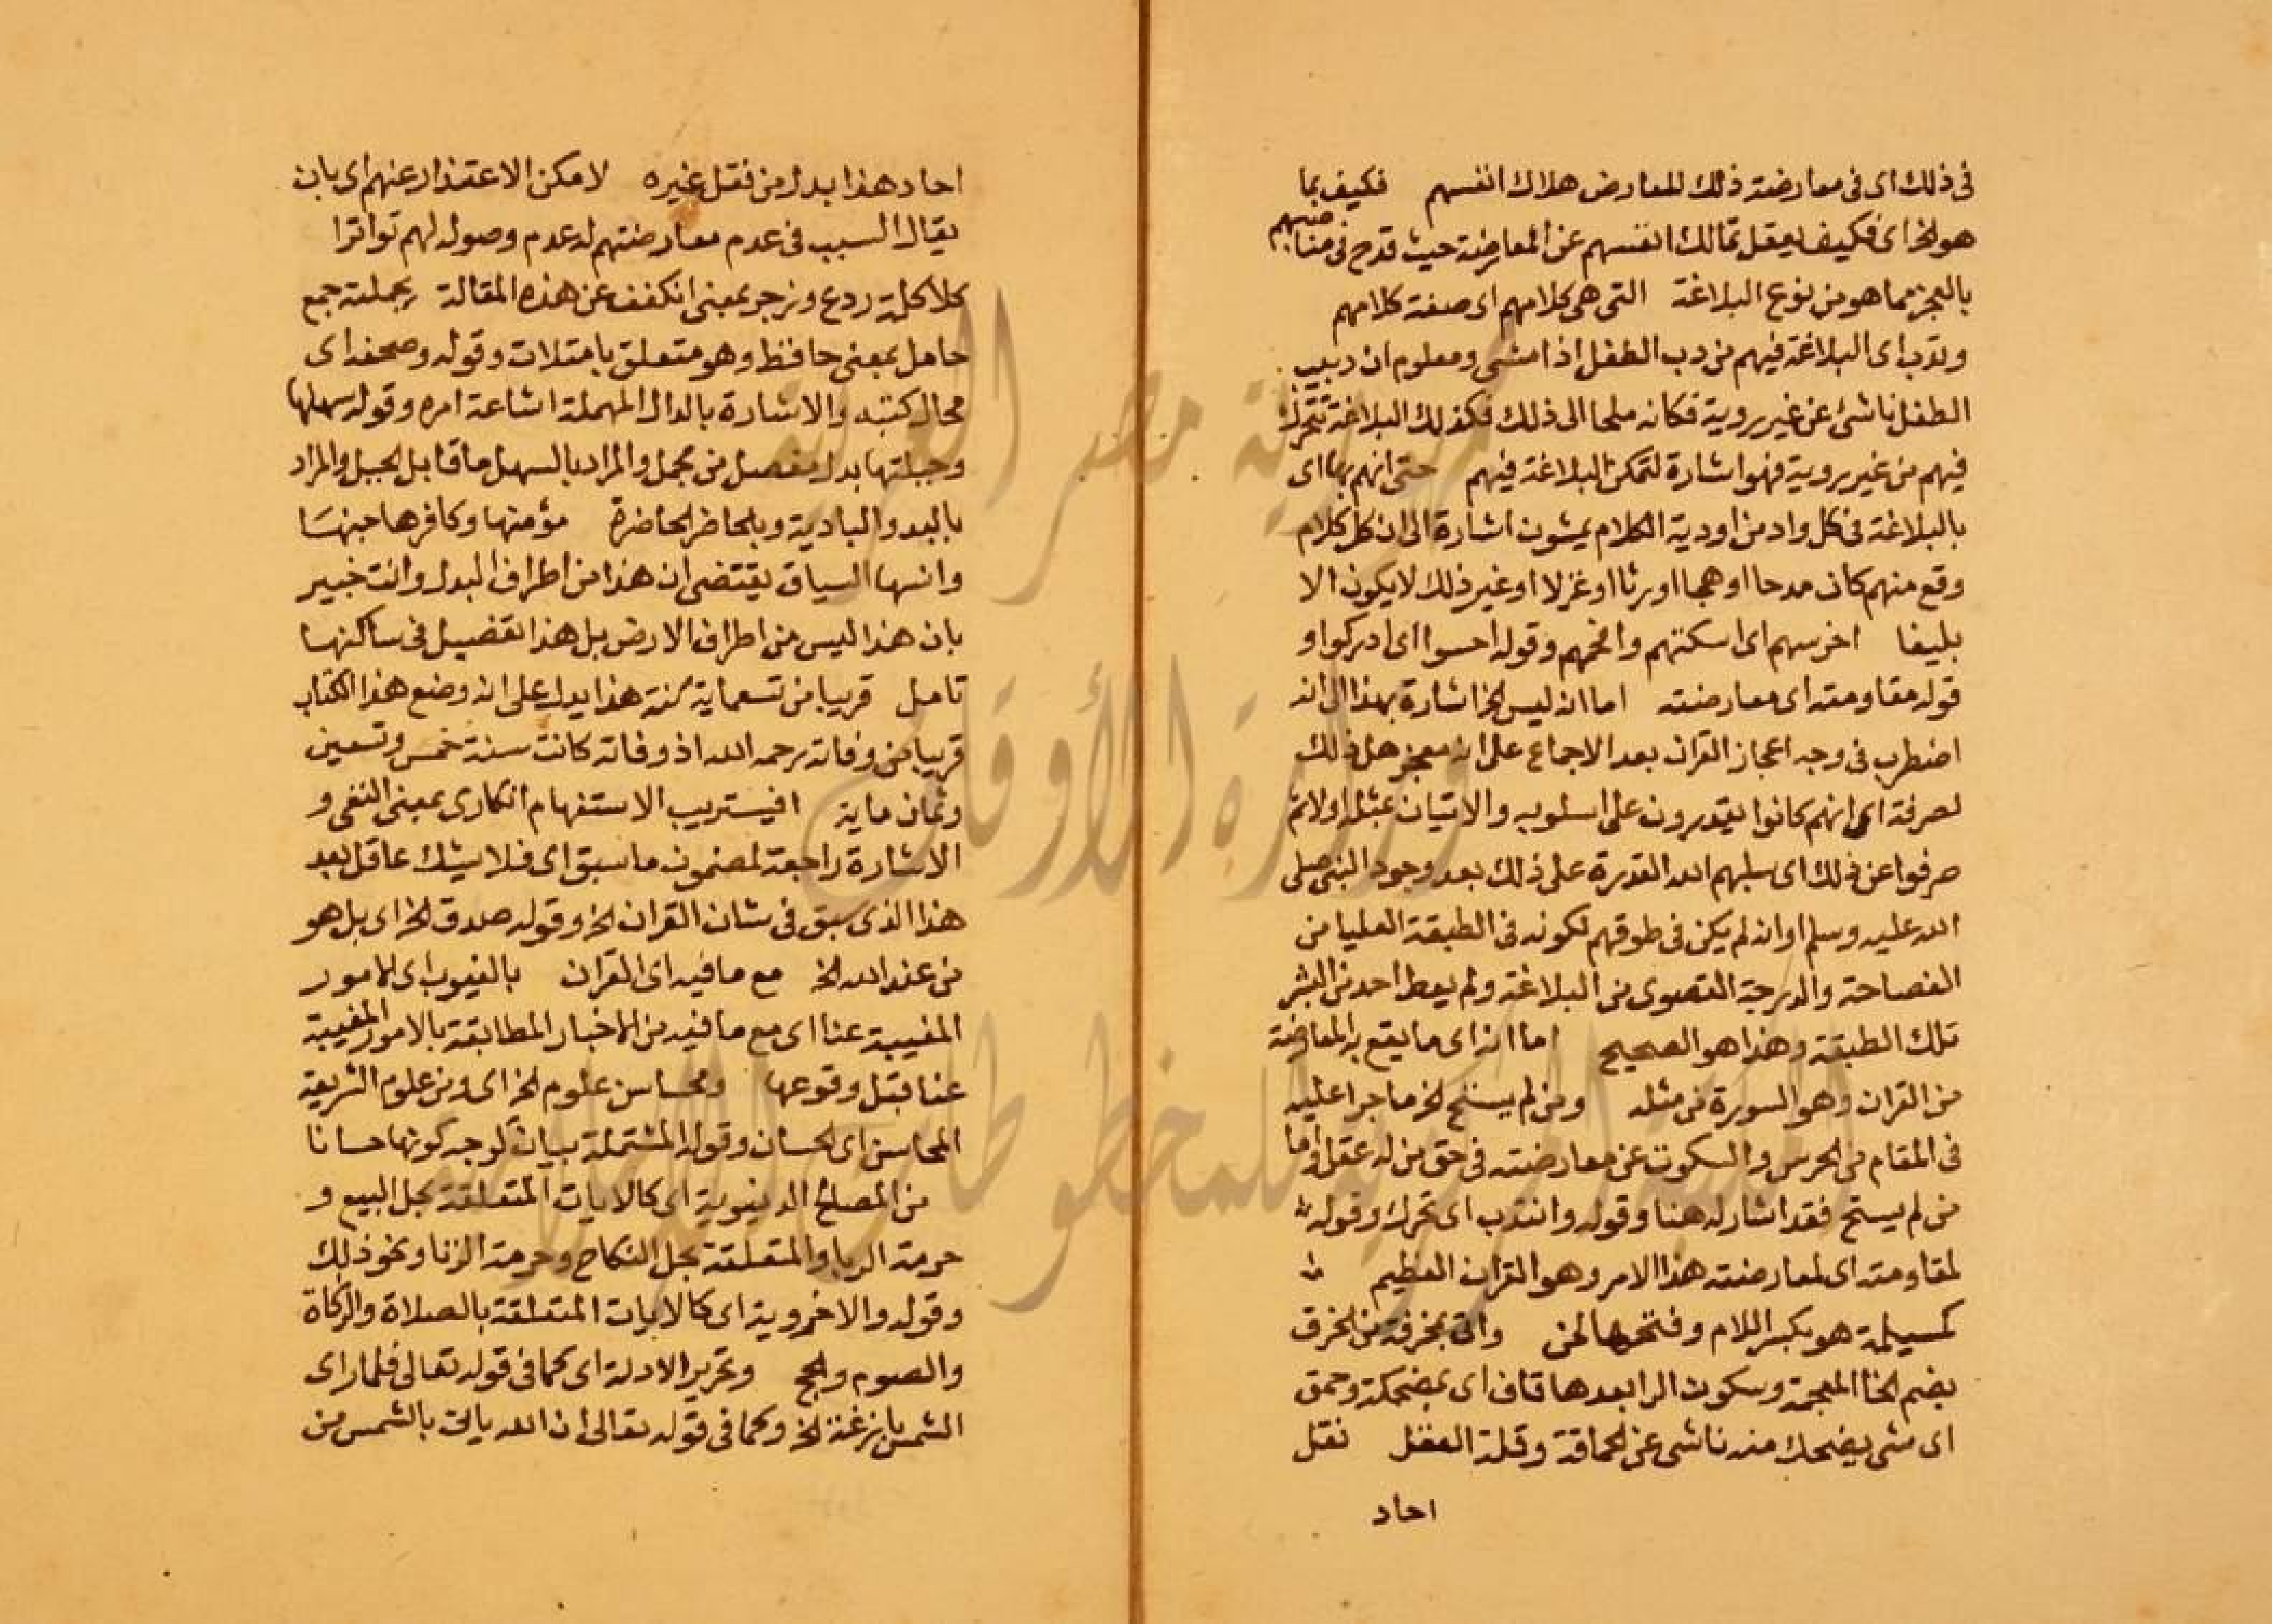 فى ذلك اى فى معارضته ذلك المعارض هلاك انفسهم فكيف بما
هو الخ اى فكيف يعقل تمالك انفسهم عن المعارضة حيث قدح فى مناصبهم
بالعجز مما هو من نوع البلاغة التى هى كلامهم اى صفة كلامهم
وتدب اى البلاغة فيهم من دب الطفل اذا مشى ومعلوم ان دبيب
الطفل ناشئ عن غير روية فكانه ملجا الى ذلك فكذلك البلاغة تتحرك
فيهم من غير روية فهو اشارة لتمكن البلاغة فيهم حتى انهم بها اى
بالبلاغة فى كل واد من اودية الكلام يمشون اشارة الى ان كل كلام
وقع منهم كان مدحا او هجا او رثا او غزلا او غير ذلك لا يكون الا
بليغا اخرسهم اى اسكتهم وافحمهم وقوله احسوا اى ادركوا و
قوله مقاومته اى معارضته اما انه ليس الخ اشارة بهذا الى انه
اضطرب فى وجه اعجاز القران بعد الاجماع على انه معجز هل ذلك
لصرفة اى انهم كانوا يقدرون على اسلوبه والاتيان بمثله اولا ثم
صرفوا عن ذلك اى سلبهم الله القدرة على ذلك بعد وجود النبى صلى
الله عليه وسلم او انه لم يكن فى طوقهم لكونه فى الطبقة العليا من
الفصاحة والدرجة القصوى من البلاغة ولم يعط احد من البشر
تلك الطبقة وهذا هو الصحيح اما انه اى ما يقع به المعارضة
من القران وهو السورة من مثله ومن لم يستح الخ ما جرا عليه
فى المقام من الخرس والسكوت عن معارضته فى حق من له عقل واما
من لم يستح فقد اشار له هنا وقوله وانتدب اى تحرك وقوله
لمقاومته اى لمعارضته هذا الامر وهو القران العظيم
كمسيلمة هو بكسر اللام وفتحها لحن واتى بمخرفة من الخرق
بضم الخا المعجمة وسكون الرا بعدها قاف اى بمضحكة وحمق
اى شى يضحك منه ناشى عن الحماقة وقلة العقل نقل
احاد
احاد هذا بدل من فنقل غيره لامكن الاعتذار عنهم اى بان
يقال السبب فى عدم معارضتهم له عدم وصوله لهم تواترا
كلا كلمة ردع وزجر بمعنى انكفف عن هذه المقالة بحملته جمع
حامل بمعنى حافظ وهو متعلق بامتلات وقوله وصحفه اى
محال كتبه والاشادة بالدال المهملة اشاعة امره وقوله سهلها
وجبلها بدل مفصل من مجمل والمراد بالسهل ما قابل الجبل والمراد
بالبدو البادية وبالحاضر الحاضرة مؤمنها وكافرها جنها
وانسها السياق يقتضى ان هذا من اطراف البدل وانت خبير
بان هذا ليس من اطراف الارض بل هذا تفصيل فى ساكنها
تامل قريبا من تسعماية سنة هذا يدل على انه وضع هذا الكتاب
قريبا من وفاته رحمه الله اذ وفاته كانت سنة خمس وتسعين
وثمان ماية افيستريب الاستفهام انكارى بمعنى النفى و
الاشارة راجعة لمضمون ما سبق اى فلا يشك عاقل بعد
هذا الذى سبق فى شان القران الخ وقوله صدق الخ اى بل هو
من عند الله الخ مع ما فيه اى القران بالغيوب اى الامور
المغيبة عنا اى مع ما فيه من الاخبار المطابقة بالامور المغيبة
عنا قبل وقوعها ومحاسن علوم الخ اى ومن علوم الشريعة
المحاسن اى الحسان وقوله المشتملة بيان لوجه كونها حسانا
من المصالح الدينوية اى كالايات المتعلقة بحل البيع و
حرمة الربا والمتعلقة بحل النكاح وحرمة الزنا ونحو ذلك
وقوله والاخروية اى كالايات المتعلقة بالصلاة والزكاة
والصوم والحج وتحرير الادلة اى كما فى قوله تعالى فلما راى
الشمس بازغة الخ وكما فى قوله تعالى ان الله ياتى بالشمس من
جمهورية مصر العربية
وزارة الأوقاف
المكتبة المركزية للمخطوطات الإسلامية